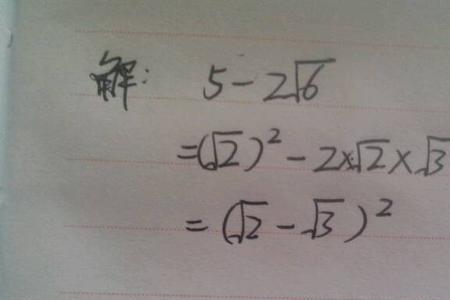 解: 5-2√6
=(√2)²-2×√2×√3
=(√2-√3)²